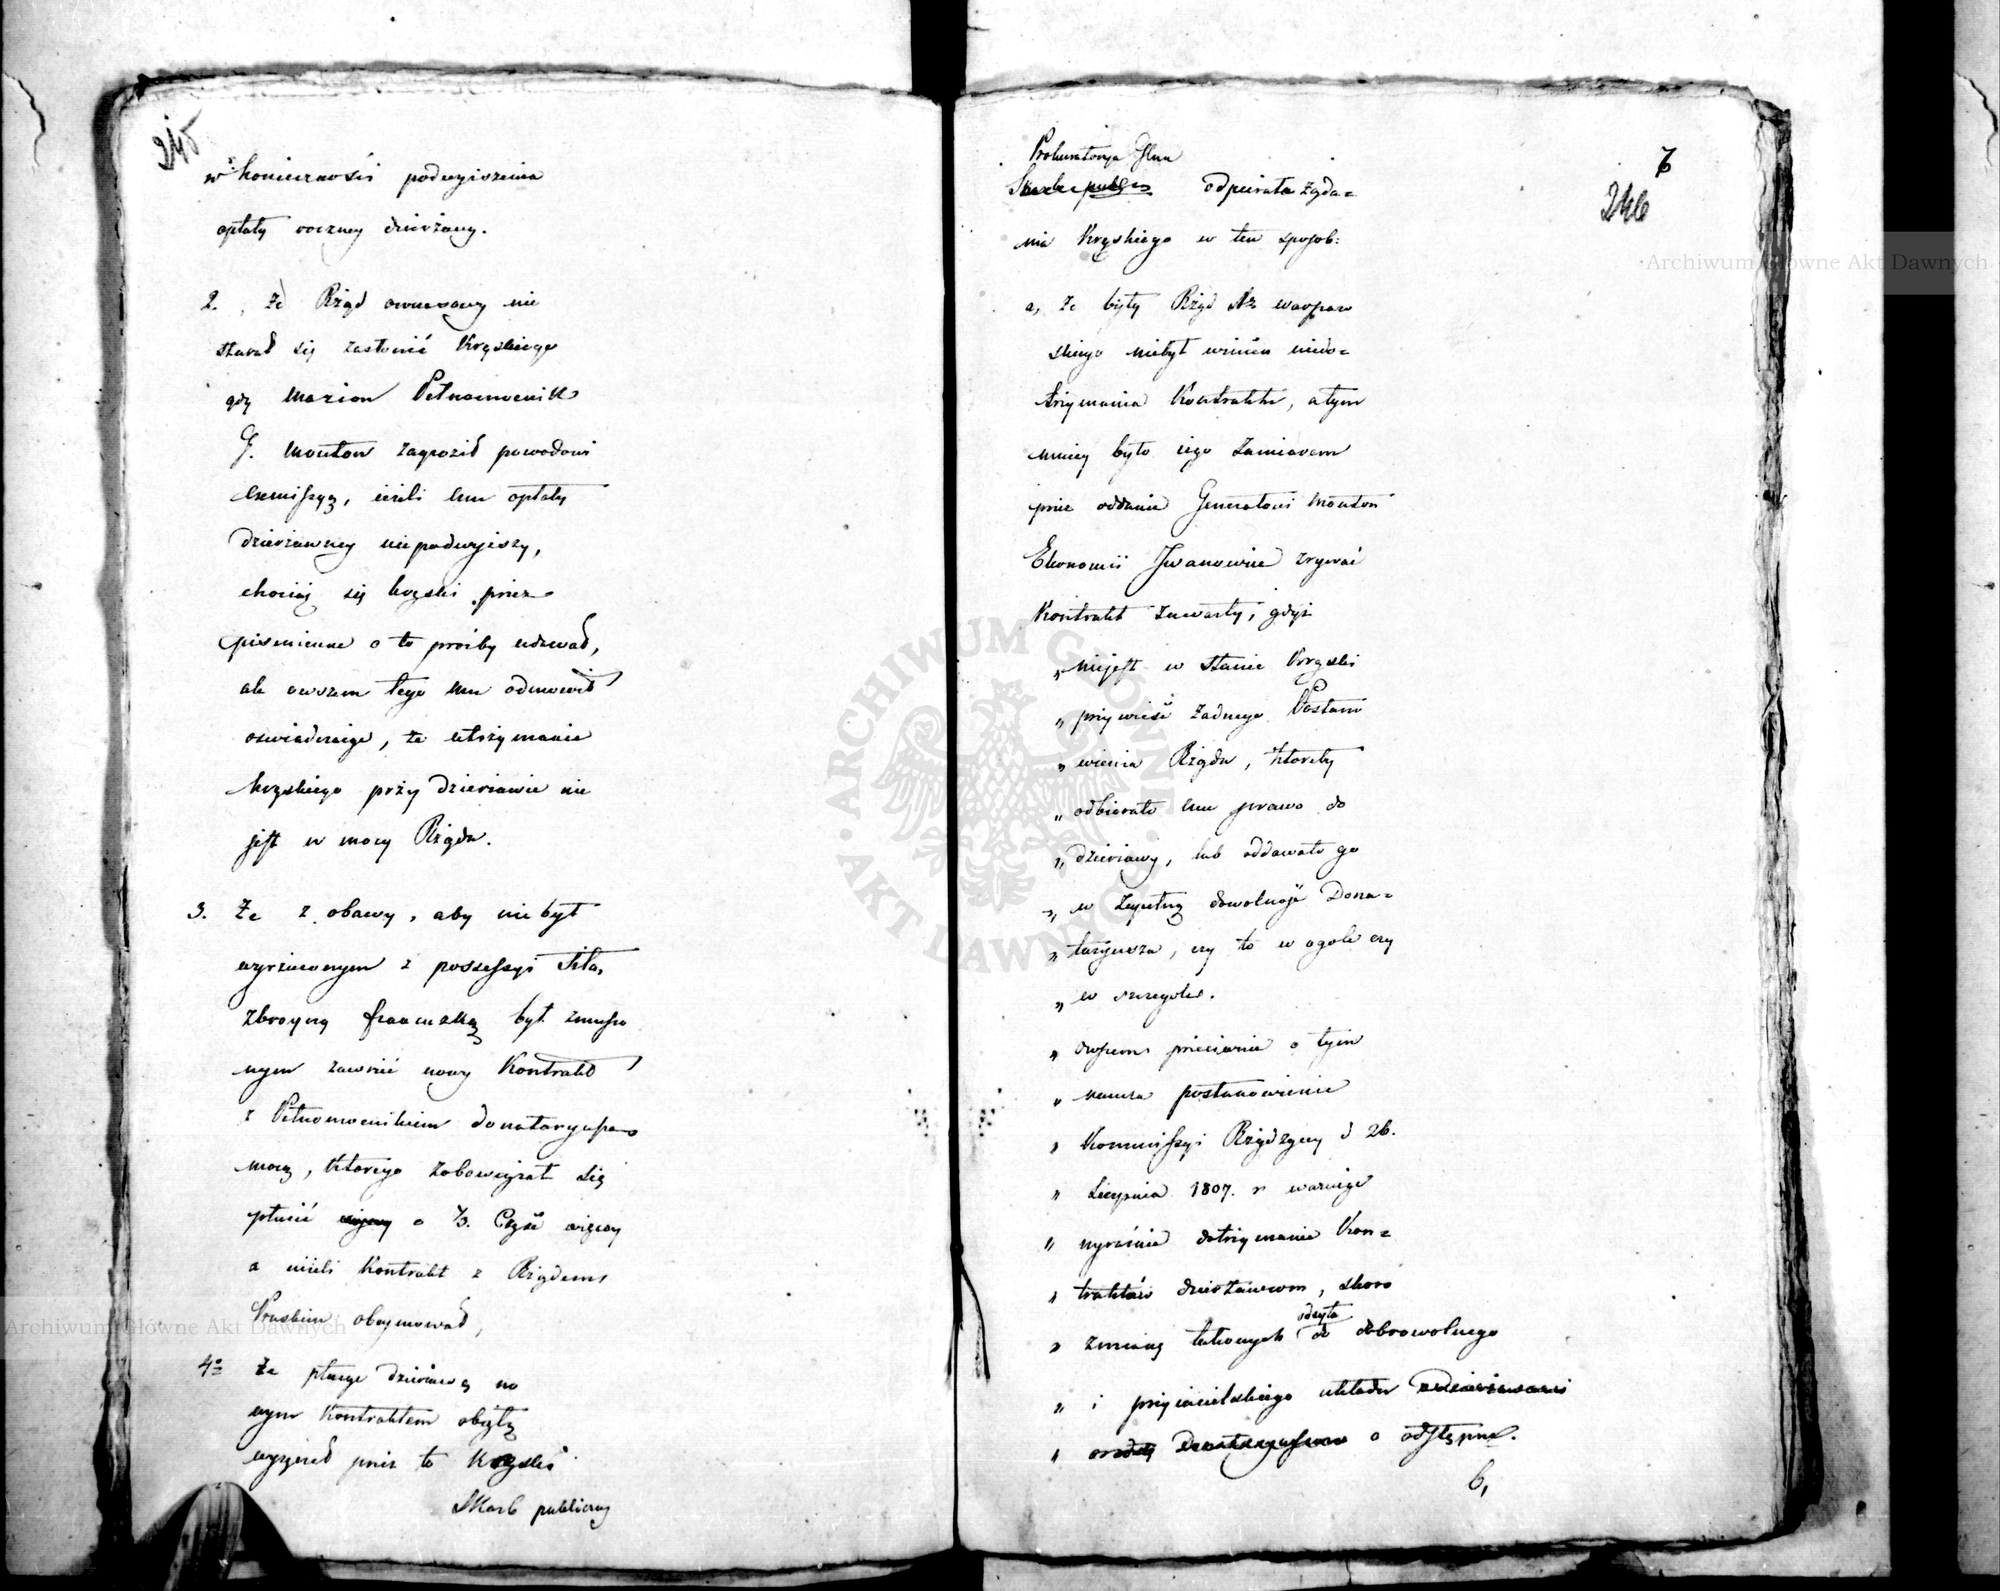 245
w konieczności podwyiszenia
opłaty roczney dzierżawy.
2. że Rząd owczesowy nie
starał się zasłonić Kręskiego
gdy Marion Pełnomocnik
G. Mouton zagroził powodowi
exmissyą, ieżeli mu opłaty
dzierżawney niepodwyiszy,
chociaż się Kręski przez
piśmienne o to prośby udawał,
ale owszem tego mu odmowił
oswiadczaiąc, że utrzymanie
Kręskiego przy dzierżawie nie
jest w mocy Rządu.
3. Że z obawy, aby nie był
wyrzuconym z possessyi siłą
zbroyną francuzką był zmuszo
nym zawrzeć nowy Kontrakt
z Pełnomocnikiem donataryusza
mocą, ktorego zobowiązał się
płacić o 1/3. Część więcey
a nieżeli Kontrakt z Rządem
Pruskim obeymował,
4o Że płacąc dzierżawę no
wym Kontraktem obiętą
wyręczał przez to Kręski
Skarb publiczny
7
246
Prokuratorya Glna
Skarbu publgo odpierała żąda=
nia Kręskiego w ten sposob:
a, Że były Rząd Xa warszaw
skiego niebył winien niedo=
trzymania Kontraktu, a tym
mniey było iego zamiarem
przez oddanie Generałowi Mouton
Ekonomii Iwanowice zrywać
Kontrakt zawarty, gdyż
„ niejest w stanie Kręski
„ przywieść żadnego Postano
„ wienia Rządu, ktoreby
„ odbierało mu prawo do
„ dzierżawy, lub oddawało go
„ w zupełną dowolność Dona=
„ taryusza, czy to w ogole czy
„ w szczegole.
„ Owszem przeciwnie o tym
„ naucza postanowienie
„ Kommissyi Rządzącey d 26.
„ Sierpnia 1807. r waruiąc
„ wyraźnie dotrzymanie Kon=
„ traktów dzierżawnom, skoro
„ zmianę takowych do dobrowolnego
„ i przyiacielskiego układu
„ o odstępne.
b,
Archiwum Główne Akt Dawnych
Archiwum Główne Akt Dawnych
ARCHIWUM GŁÓWNE AKT DAWNYCH